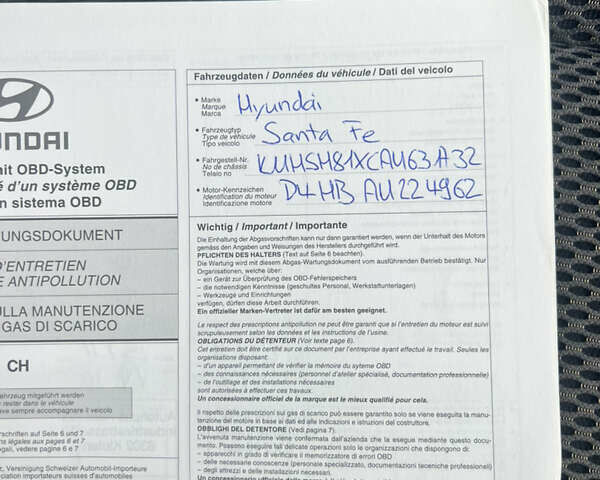 UNDAI
it OBD-System
é d'un système OBD
n sistema OBD
UNGSDOKUMENT
D'ENTRETIEN
E ANTIPOLLUTION
ULLA MANUTENZIONE
GAS DI SCARICO
CH
ahrzeug mitgeführt werden
rester dans le véhicule
eve sempre accompagnare il veicolo
rschriften auf Seite 6 und 7
ns légales aux pages 6 et 7
egali, vedere pagine 6 e 7
z, Vereinigung Schweizer Automobil-Importeure
ciation importateurs suisses d'automobiles
Fahrzeugdaten / Données du véhicule / Dati del veicolo
• Marke
Marque
Marca
Hyundai
• Fahrzeugtyp
Type de véhicule
Tipo veicolo
Santa Fe
• Fahrgestell-Nr.
No de châssis
Telaio no
KMHSH81XCAU63A32
• Motor-Kennzeichen
Identification du moteur
Identificazione motore
D4HB AU224962
Wichtig / Important / Importante
Die Einhaltung der Abgasvorschriften kann nur dann garantiert werden, wenn der Unterhalt des Motors
gemäss den Angaben und Weisungen des Herstellers durchgeführt wird.
PFLICHTEN DES HALTERS (Text auf Seite 6 beachten).
Die Wartung wird mit diesem Abgas-Wartungsdokument vom ausführenden Betrieb bestätigt. Nur
Organisationen, welche über:
– ein Gerät zur Überprüfung des OBD-Fehlerspeichers
– die notwendigen Kenntnisse (geschultes Personal, Werkstattunterlagen)
– Werkzeuge und Einrichtungen
verfügen, dürfen diese Arbeit durchführen.
Ein offizieller Marken-Vertreter ist dafür am besten geeignet.
Le respect des prescriptions antipollution ne peut être garanti que si l'entretien du moteur est suivi
scrupuleusement selon les données et les instructions de l'usine.
OBLIGATIONS DU DÉTENTEUR (Voir texte page 6).
Cet entretien doit être certifié sur ce document par l'entreprise ayant effectué le travail. Seules les
organisations disposant:
– d'un appareil permettant de vérifier la mémoire du système OBD
– des connaissances nécessaires (personnel d'atelier spécialisé, documentation professionnelle)
– de l'outillage et des installations nécessaires
sont autorisées à effectuer ces travaux.
Un concessionnaire officiel de la marque est le mieux qualifié pour cela.
Il rispetto delle prescrizioni sui gas di scarico può essere garantito solo se viene eseguita la manu-
tenzione del motore in base ai dati ed alle indicazioni e istruzioni del costruttore.
OBBLIGHI DEL DETENTORE (Vedi pagina 7).
L'avvenuta manutenzione viene confermata dall'azienda che la esegue mediante questo docu-
mento. Possono eseguire tali delicate operazioni solo le organizzazioni che dispongono di:
– apparecchi in grado di verificare il memorizzatore di errori OBD
– delle necessarie conoscenze (personale specializzato, documentazioni tecniche professionali)
– degli attrezzi e delle installazioni necessari.